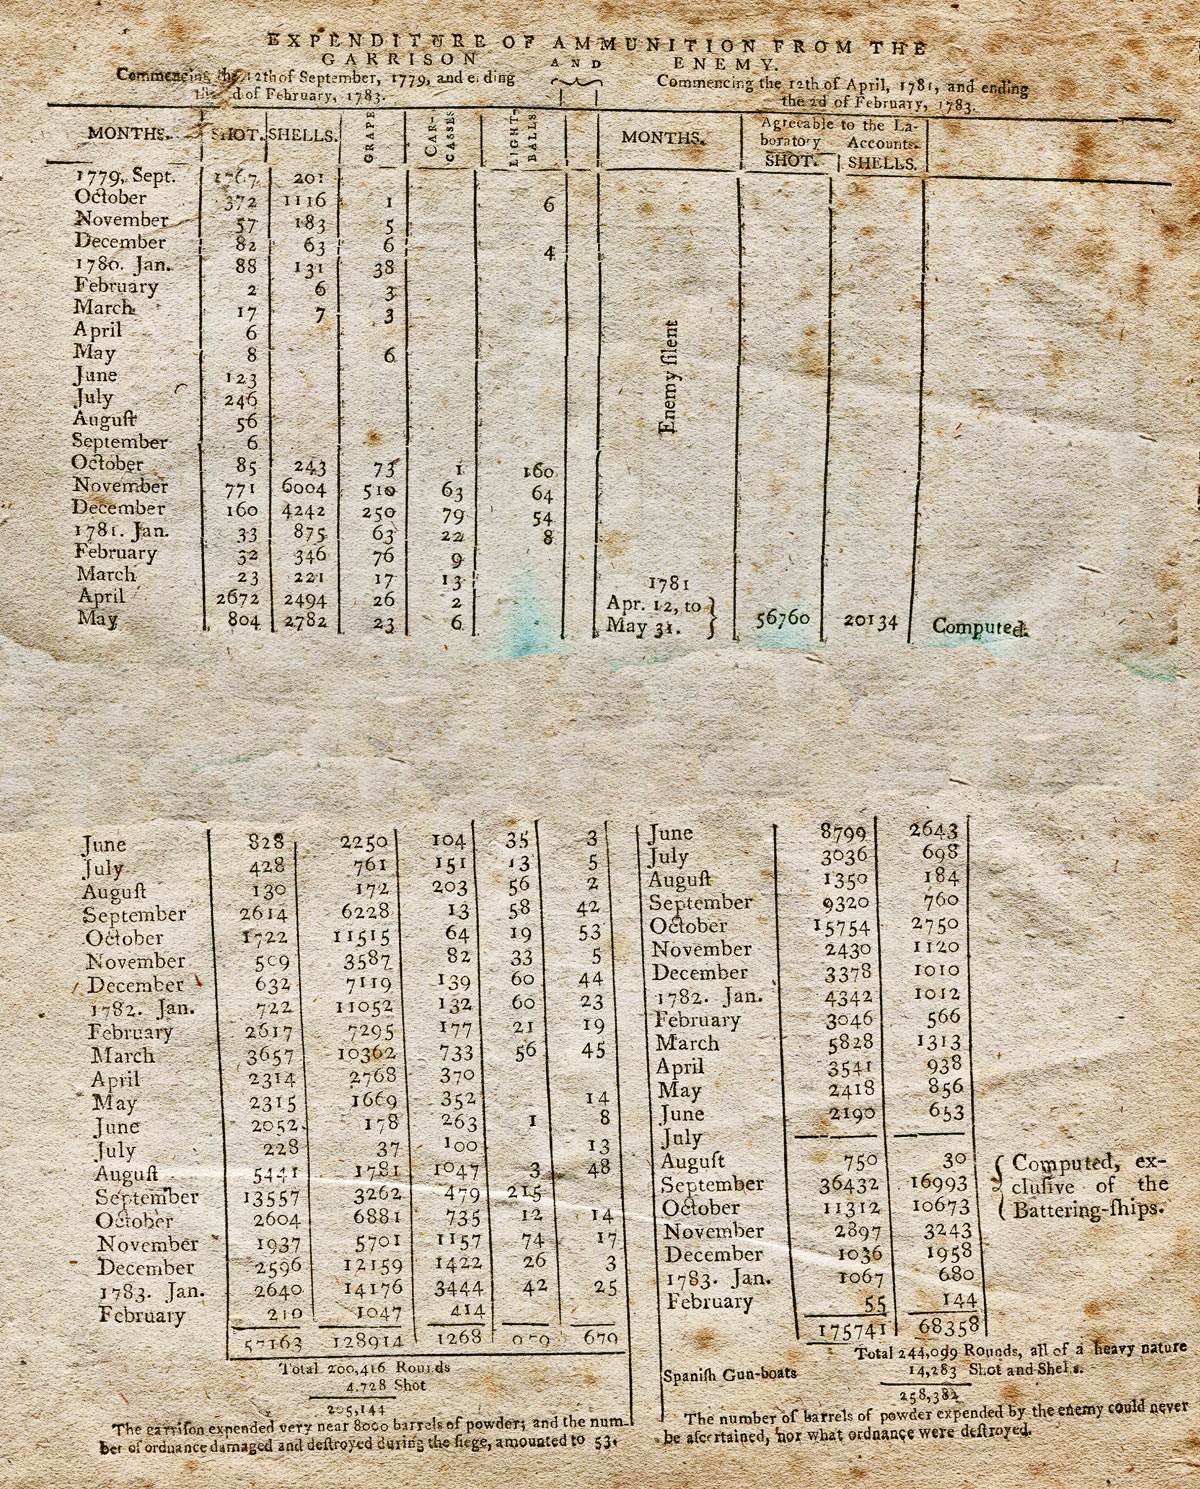 EXPENDITURE OF AMMUNITION FROM THE
GARRISON AND ENEMY.
Commencing the 12th of September, 1779, and ending
the 2d of February, 1783.
Commencing the 12th of April, 1781, and ending
the 2d of February, 1783.
MONTHS. SHOT. SHELLS. GRAPE CAR-CASSES LIGHT-BALLS MONTHS. Agreeable to the La-
boratory Accounts.
SHOT. SHELLS.
1779, Sept. 1767 201
October 372 1116 1 6
November 57 183 5
December 82 63 6 4
1780. Jan. 88 131 38
February 2 6 3
March 17 7 3
April 6
May 8 6
June 123
July 246
Auguſt 56
September 6
October 85 243 73 1 160
November 771 6004 510 63 64
December 160 4242 250 79 54
1781. Jan. 33 875 63 22 8
February 32 346 76 9
March 23 221 17 13
April 2672 2494 26 2
May 804 2782 23 6
Enemy ſilent
1781
Apr. 12, to
May 31. 56760 20134 Computed.
June 828 2250 104 35 3
July 428 761 151 13 5
Auguſt 130 172 203 56 2
September 2614 6228 13 58 42
October 1722 11515 64 19 53
November 509 3587 82 33 5
December 632 7119 139 60 44
1782. Jan. 722 11052 132 60 23
February 2617 7295 177 21 19
March 3657 10362 733 56 45
April 2314 2768 370
May 2315 1669 352 14
June 2052 178 263 1 8
July 228 37 100 13
Auguſt 5441 1781 1047 3 48
September 13557 3262 479 215
October 2604 6881 735 12 14
November 1937 5701 1157 74 17
December 2596 12159 1422 26 3
1783. Jan. 2640 14176 3444 42 25
February 210 1047 414
57163 128914 1268 679
Total 200,416 Rounds
4.728 Shot
205,144
The garriſon expended very near 8000 barrels of powder; and the num-
ber of ordnance damaged and deſtroyed during the ſiege, amounted to 53.
June 8799 2643
July 3036 698
Auguſt 1350 184
September 9320 760
October 15754 2750
November 2430 1120
December 3378 1010
1782. Jan. 4342 1012
February 3046 566
March 5828 1313
April 3541 938
May 2418 856
June 2190 653
July — —
Auguſt 750 30
September 36432 16993
October 11312 10673
Computed, ex-
cluſive of the
Battering-ſhips.
November 2897 3243
December 1036 1958
1783. Jan. 1067 680
February 55 144
175741 68358
Total 244,099 Rounds, all of a heavy nature
Spaniſh Gun-boats 14,283 Shot and Shells.
258,382
The number of barrels of powder expended by the enemy could never
be aſcertained, nor what ordnance were deſtroyed.